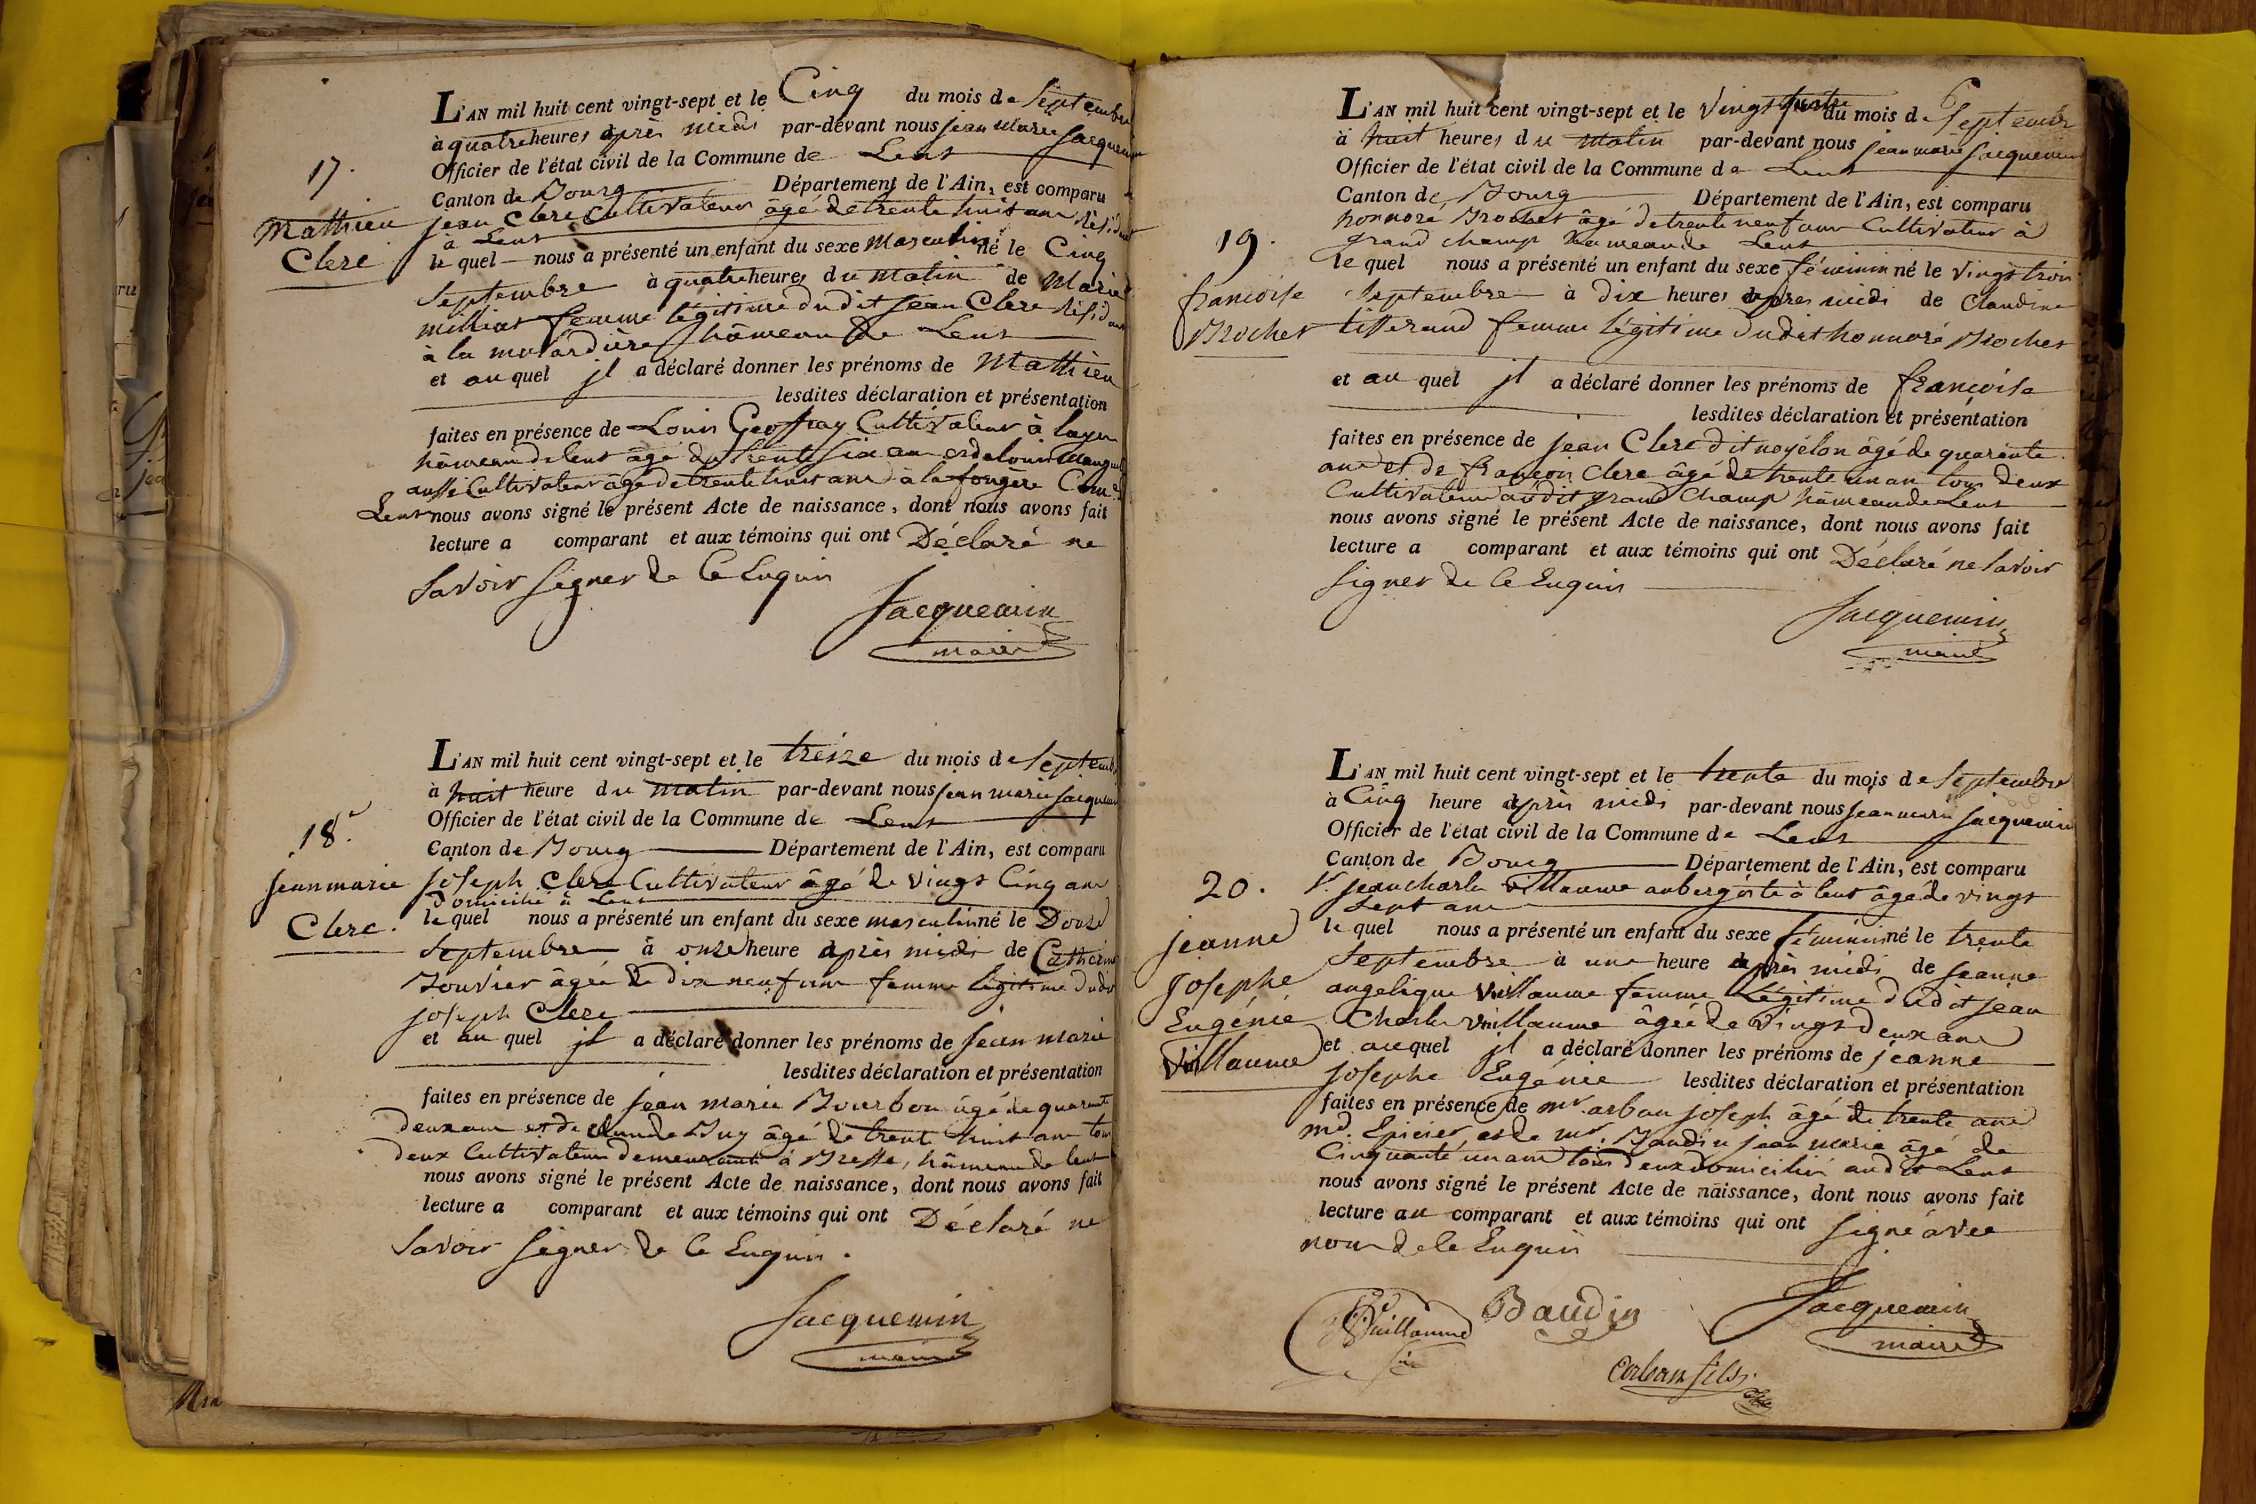 17.
Mathieu
Clerc
L'AN mil huit cent vingt-sept et le Cinq du mois de Septembre
à quatre heures après midi par-devant nous jean Marie jacquemin
Officier de l'état civil de la Commune de Lent
Canton de Bourg Département de l'Ain, est comparu
jean Clerc Cultivateur âgé de trente huit ans Résident
à Lent
le quel nous a présenté un enfant du sexe Masculin né le Cinq
Septembre à quatre heures du matin de Marie
femme légitime dudit jean Clerc Résident
à la hâmeau de Lent
et au quel jl a déclaré donner les prénoms de Mathieu
lesdites déclaration et présentation
faites en présence de Louis Geoffray Cultivateur à
hâmeau de lent âgé de trente Six ans et de louis
aussi Cultivateur âgé de trente huit ans à la fougère
Lent nous avons signé le présent Acte de naissance, dont nous avons fait
lecture a comparant et aux témoins qui ont Déclaré ne
Savoir Signer de Ce Enquis
Jacquemin
maire
18.
jean marie
Clerc.
L'AN mil huit cent vingt-sept et le treize du mois de Septembre
à huit heure du matin par-devant nous jean marie jacquemin
Officier de l'état civil de la Commune de Lent
Canton de Bourg Département de l'Ain, est comparu
joseph Clerc Cultivateur âgé de vingt Cinq ans
Domicilié à Lent
le quel nous a présenté un enfant du sexe masculin né le Douze
Septembre à onze heure après midi de Catherine
Bouvier âgée de dix neuf ans femme légitime dudit
joseph Clerc
et au quel jl a déclaré donner les prénoms de jean marie
lesdites déclaration et présentation
faites en présence de jean marie Bourbon âgé de quarante
deux ans et de Claude Buy âgé de trente huit ans tous
deux Cultivateurs demeurant à Bresse, hâmeau de lent
nous avons signé le présent Acte de naissance, dont nous avons fait
lecture a comparant et aux témoins qui ont Déclaré ne
Savoir Signer de Ce Enquis.
Jacquemin
maire
19.
francoise
Brochet
L'AN mil huit cent vingt-sept et le vingt quatre du mois de Septembre
à huit heures du matin par-devant nous jean marie jacquemin
Officier de l'état civil de la Commune de Lent
Canton de Bourg Département de l'Ain, est comparu
honnoré Brochet âgé de trente neuf ans Cultivateur à
grand champ hameau de Lent
le quel nous a présenté un enfant du sexe féminin né le vingt trois
Septembre à Dix heures après midi de Claudine
tisserand femme légitime dudit honnoré Brochet
et au quel jl a déclaré donner les prénoms de françoise
lesdites déclaration et présentation
faites en présence de jean Clerc dit noyélon âgé de quarante
ans et de françois Clerc âgé de trente un an tous deux
Cultivateur audit grand Champ hâmeau de Lent
nous avons signé le présent Acte de naissance, dont nous avons fait
lecture a comparant et aux témoins qui ont Déclaré ne Savoir
Signer de Ce Enquis
Jacquemin
maire
20.
jeanne
josephe
Eugénie
Vuillaume
L'AN mil huit cent vingt-sept et le trente du mois de Septembre
à Cinq heure après midi par-devant nous jean marie jacquemin
Officier de l'état civil de la Commune de Lent
Canton de Bourg Département de l'Ain, est comparu
Sr. jean charles Vuillaume aubergiste à lent âgé de vingt
Sept ans
le quel nous a présenté un enfant du sexe féminin né le trente
Septembre à une heure après midi de jeanne
angelique Vuillaume femme légitime dudit jean
Charles Vuillaume âgée de vingt deux ans
et au quel jl a déclaré donner les prénoms de jeanne
josephe Eugénie lesdites déclaration et présentation
faites en présence de mr. arban joseph âgé de trente ans
md. Epicier, et de mr. Baudin jean marie âgé de
Cinquante un ans tous deux domiciliés audit Lent
nous avons signé le présent Acte de naissance, dont nous avons fait
lecture au comparant et aux témoins qui ont signé avec
nous de ce Enquis
Vuillaume
Baudin
Jacquemin
maire
arban fils